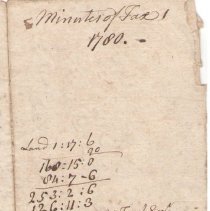 Minutes of Tax
1780.-
Land 1:17:6
90
168=15:0
84:7-6
253:2:6
126:11:3